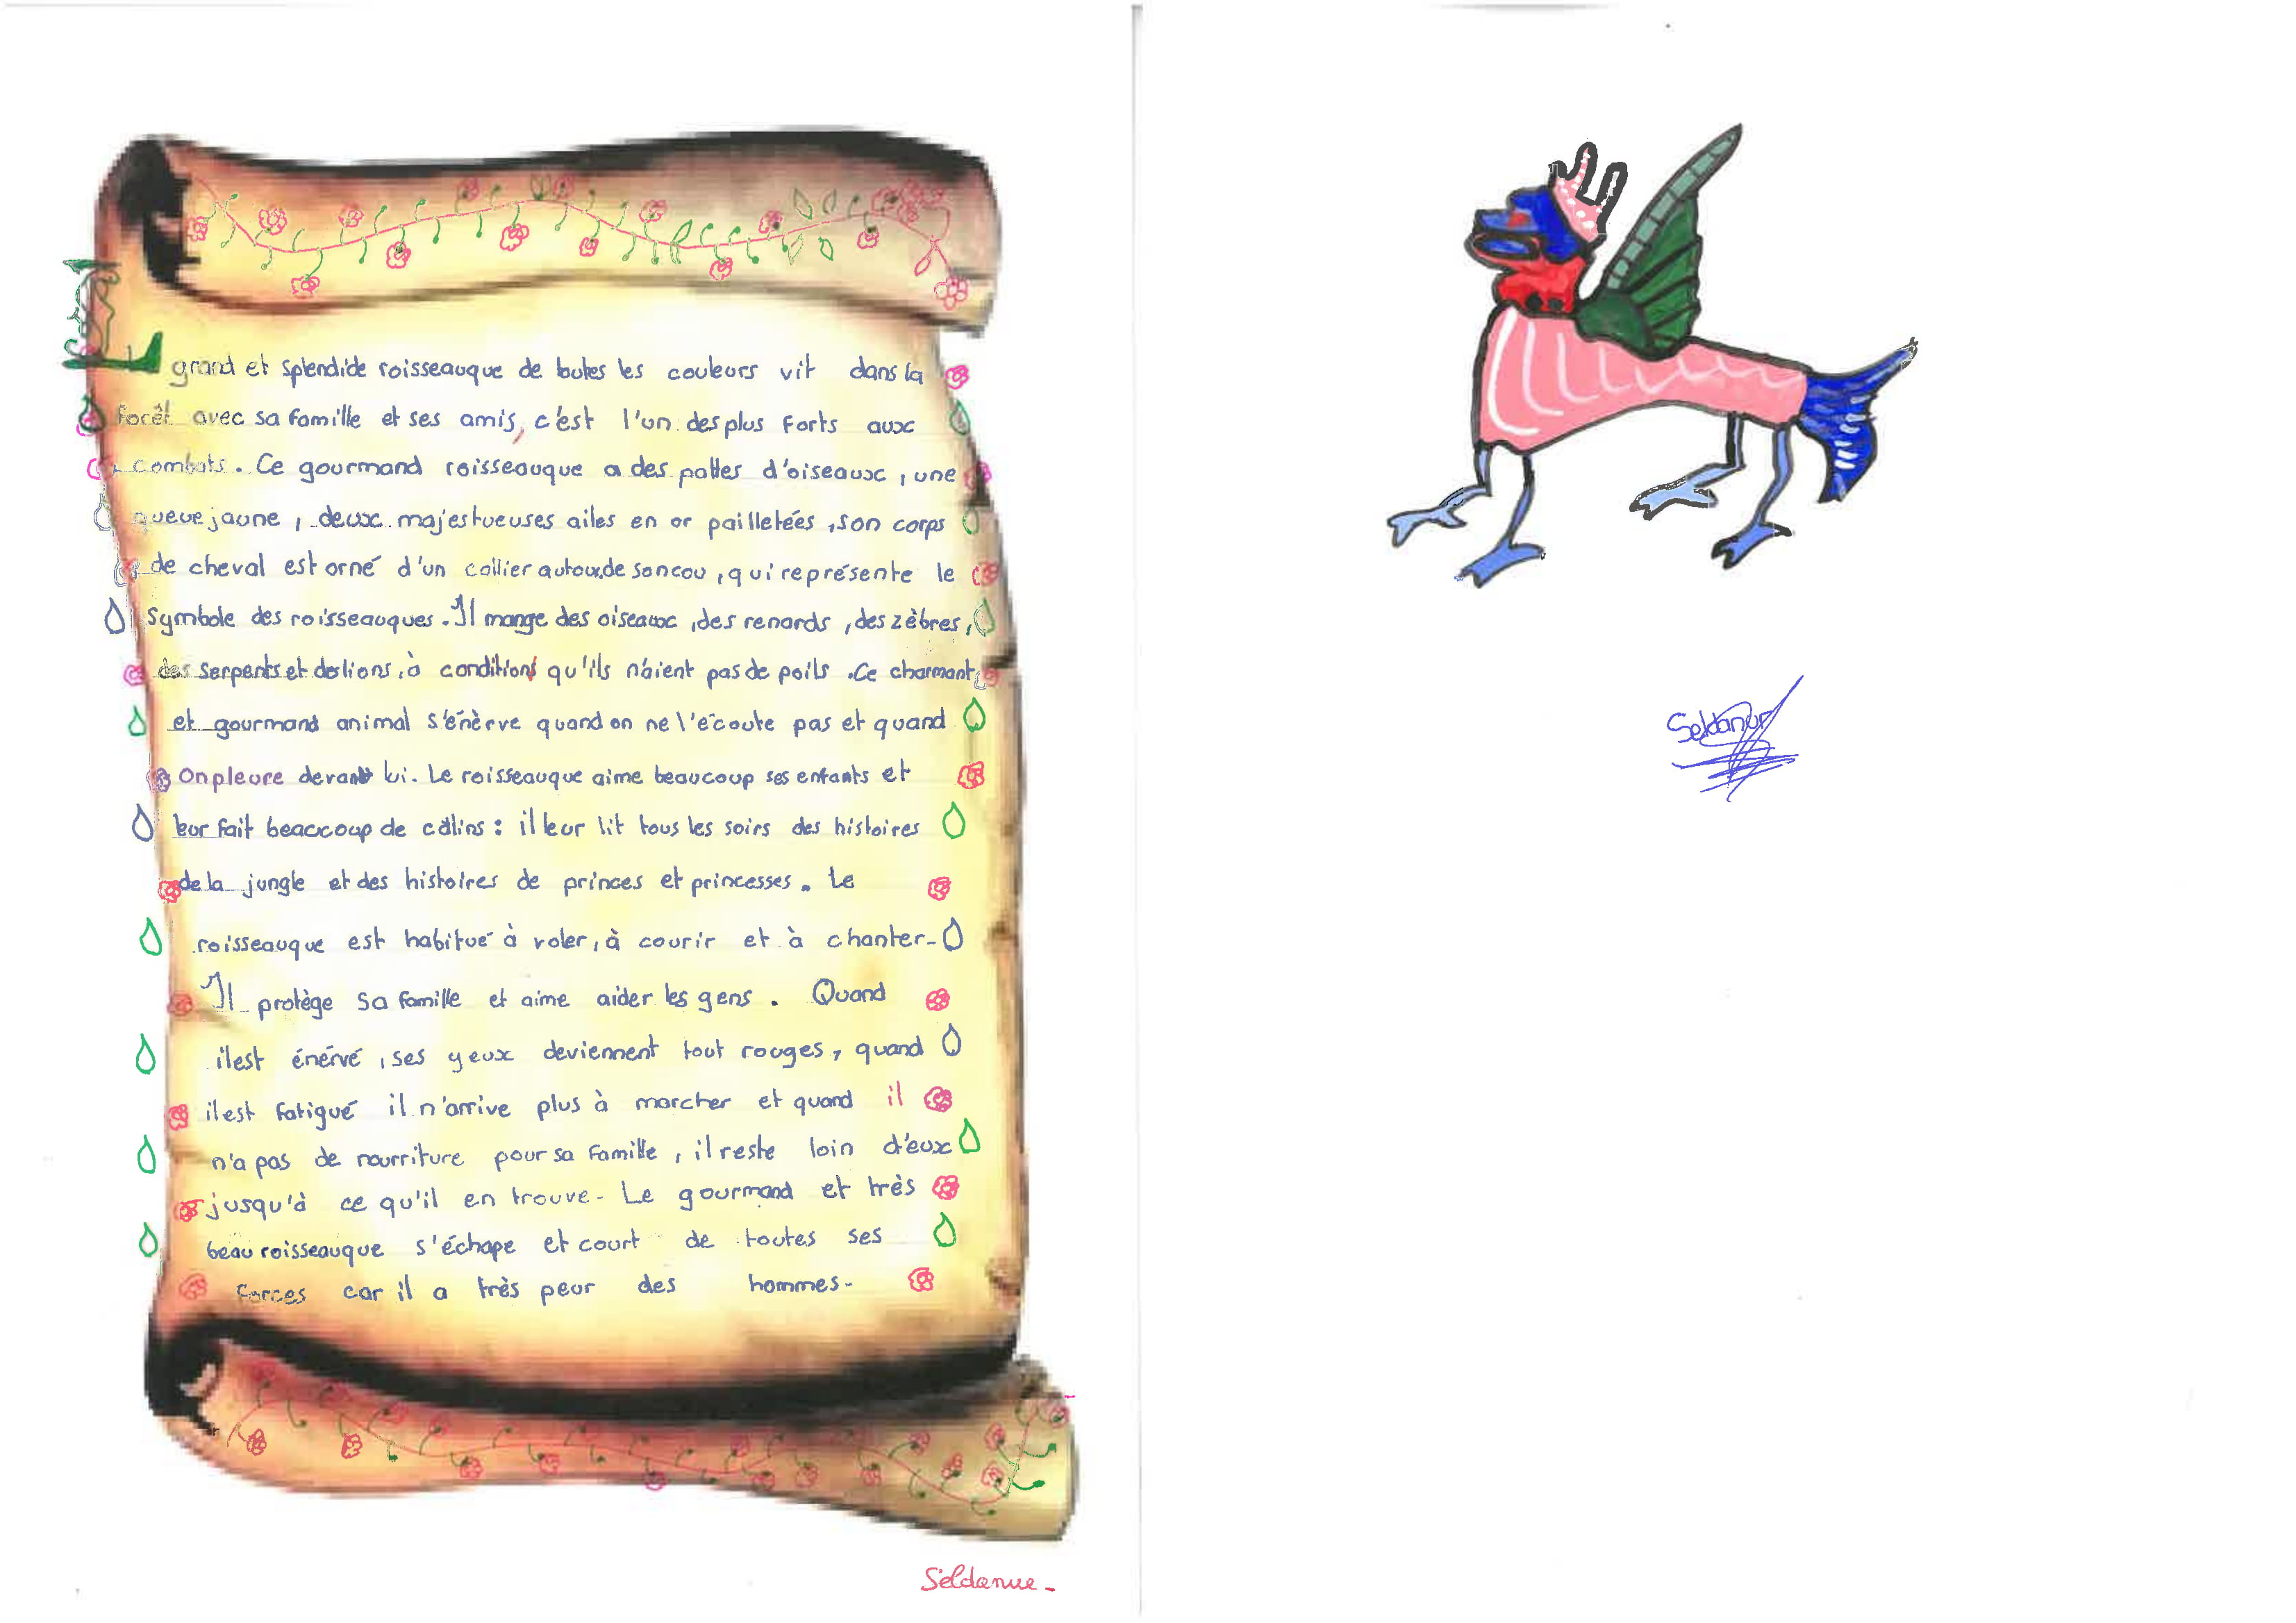 Le grand et splendide roisseauque de toutes les couleurs vit dans la
forêt avec sa famille et ses amis, c'est l'un des plus forts aux
combats. Ce gourmand roisseauque a des pattes d'oiseaux, une
queue jaune, deux majestueuses ailes en or pailletées, son corps
de cheval est orné d'un collier autour de son cou, qui représente le
symbole des roisseauques. Il mange des oiseaux, des renards, des zèbres,
des serpents et des lions, à condition qu'ils n'aient pas de poils. Ce charmant
et gourmand animal s'énèrve quand on ne l'écoute pas et quand
on pleure devant lui. Le roisseauque aime beaucoup ses enfants et
leur fait beaucoup de câlins : il leur lit tous les soirs des histoires
de la jungle et des histoires de princes et princesses. Le
roisseauque est habitué à voler, à courir et à chanter.
Il protège sa famille et aime aider les gens. Quand
il est énérvé, ses yeux deviennent tout rouges, quand
il est fatigué il n'arrive plus à marcher et quand il
n'a pas de nourriture pour sa famille, il reste loin d'eux
jusqu'à ce qu'il en trouve. Le gourmand et très
beau roisseauque s'échape et court de toutes ses
forces car il a très peur des hommes.
Seldanur
Seldanur